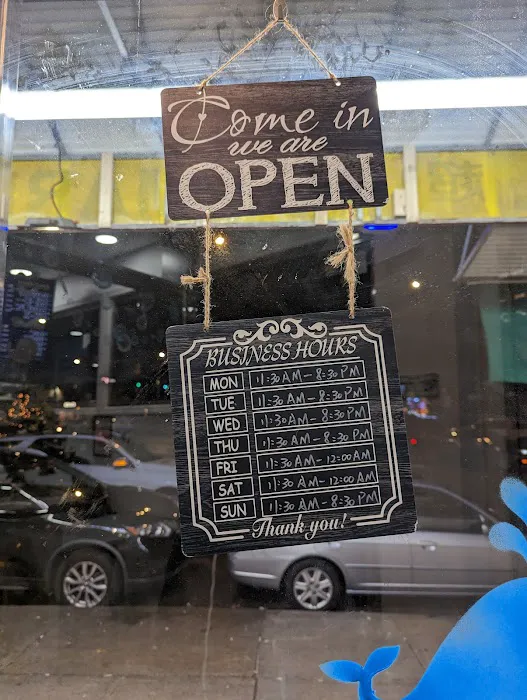 Come in
we are
OPEN
BUSINESS HOURS
MON 11:30 AM - 8:30 PM
TUE 11:30 AM - 8:30 PM
WED 11:30 AM - 8:30 PM
THU 11:30 AM - 8:30 PM
FRI 11:30 AM - 12:00 AM
SAT 11:30 AM - 12:00 AM
SUN 11:30 AM - 8:30 PM
Thank you!